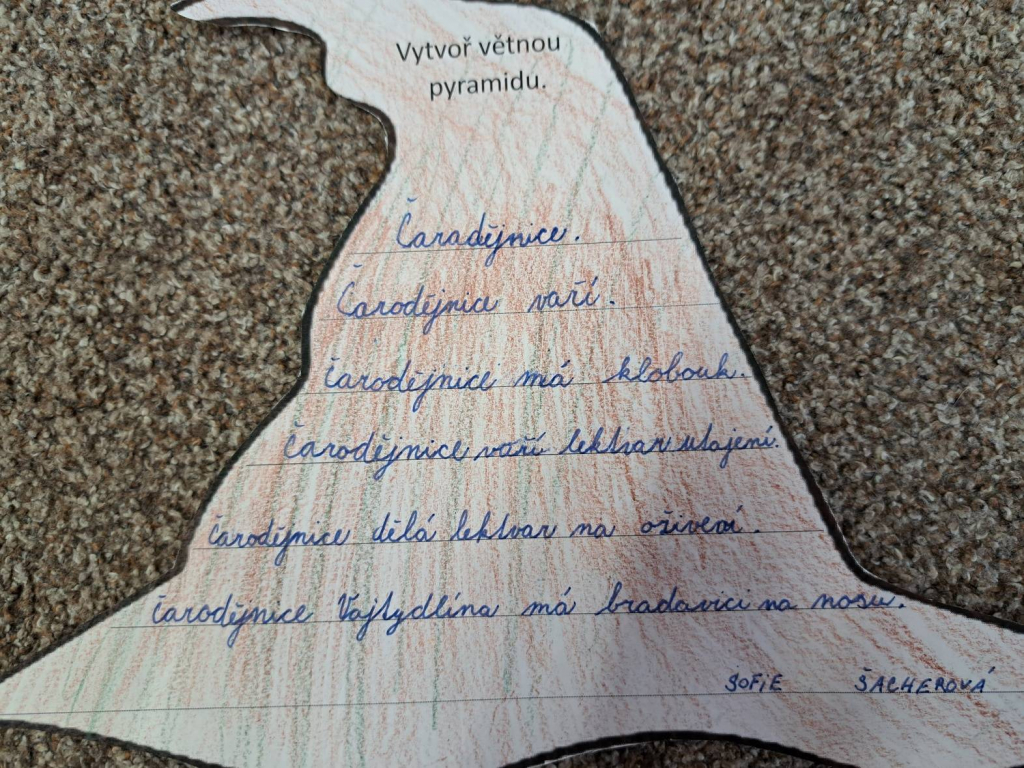 Vytvoř větnou
pyramidu.
Čaradějnice.
Čarodějnice vaří.
Čarodějnice má klobouk.
Čarodějnice vaří lektvar utajení.
Čarodějnice dělá lektvar na oživení.
Čarodějnice Vajtydlína má bradavici na nosu.
SOFIE ŠACHEROVÁ